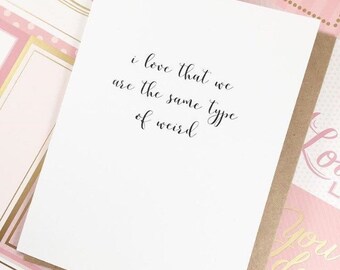 i love that we
are the same type
of weird
You